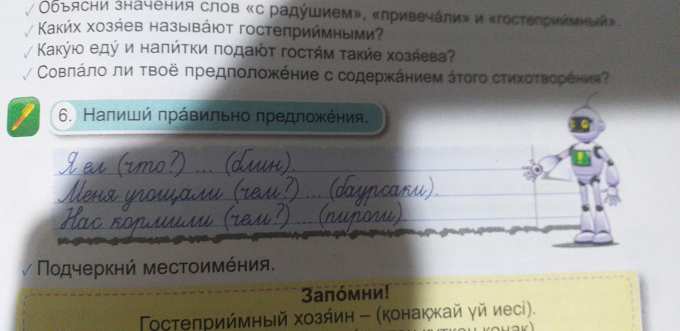 Объясни́ значе́ния слов «с раду́шием», «привеча́ли» и «гостеприи́мный».
Каки́х хозя́ев называ́ют гостеприи́мными?
Каку́ю еду́ и напи́тки подаю́т гостя́м таки́е хозя́ева?
Совпа́ло ли твоё предположе́ние с содержа́нием э́того стихотворе́ния?
6. Напиши́ пра́вильно предложе́ния.
Я ел (что?) ... (блин).
Меня угощали (чем?) ... (баурсаки).
Нас кормили (чем?) ... (пироги)
Подчеркни́ местоиме́ния.
Запо́мни!
Гостеприи́мный хозя́ин – (қонақжай үй иесі).